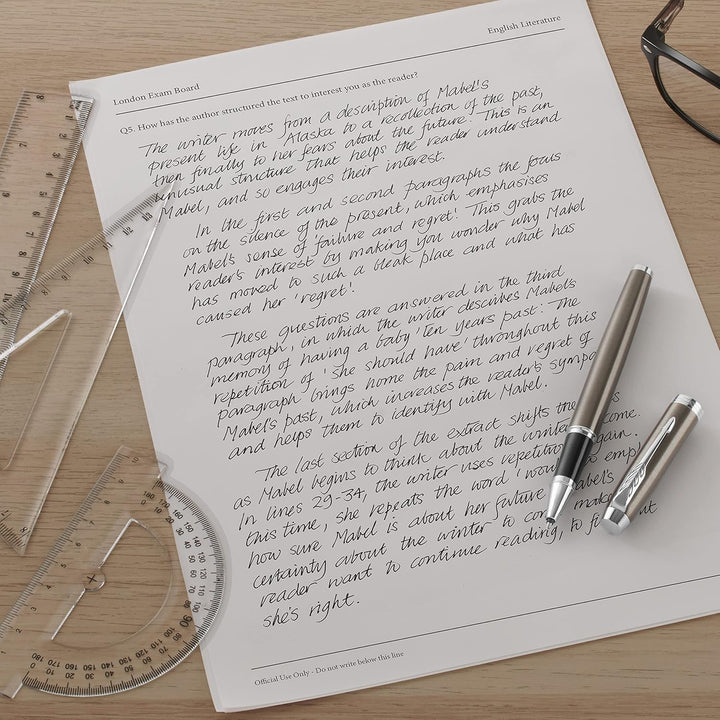 London Exam Board
English Literature
Q5. How has the author structured the text to interest you as the reader?
The writer moves from a description of Mabel's
present life in Alaska to a recollection of the past,
then finally to her fears about the future. This is an
unusual structure that helps the reader understand
Mabel, and so engages their interest.
In the first and second paragraphs the focus
on the silence of the present, which emphasises
Mabel's sense of 'failure and regret'. This grabs the
reader's interest by making you wonder why Mabel
has moved to such a bleak place and what has
caused her 'regret'.
These questions are answered in the third
paragraph, in which the writer describes Mabel's
memory of having a baby 'ten years past'. The
repetition of 'she should have' throughout this
paragraph brings home the pain and regret of
Mabel's past, which increases the reader's
and helps them to identify with Mabel.
The last section of the extract shifts the
as Mabel begins to think about the winter
In lines 29-34, the writer uses repetition again.
this time, she repeats the word
how sure Mabel is about her future Mabel's
certainty about the winter to
reader want to continue reading, to
she's right.
Official Use Only - Do not write below this line